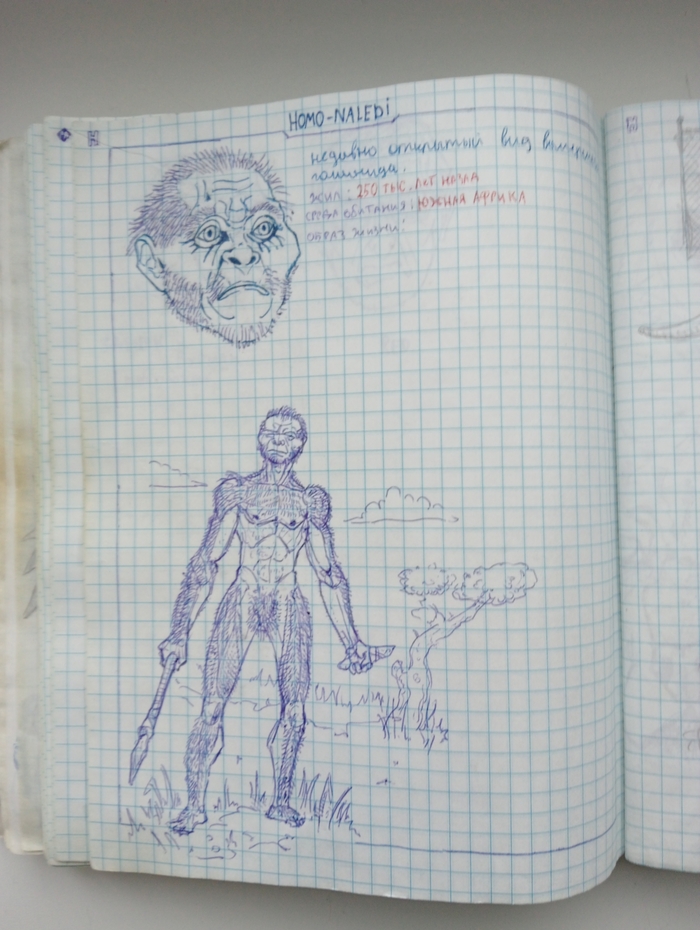 HOMO-NALEDI
недавно открытый вид
гоминида.
ЖИЛ: 250 ТЫС. ЛЕТ НАЗАД
СРЕДА ОБИТАНИЯ: ЮЖНАЯ АФРИКА
ОБРАЗ ЖИЗНИ: